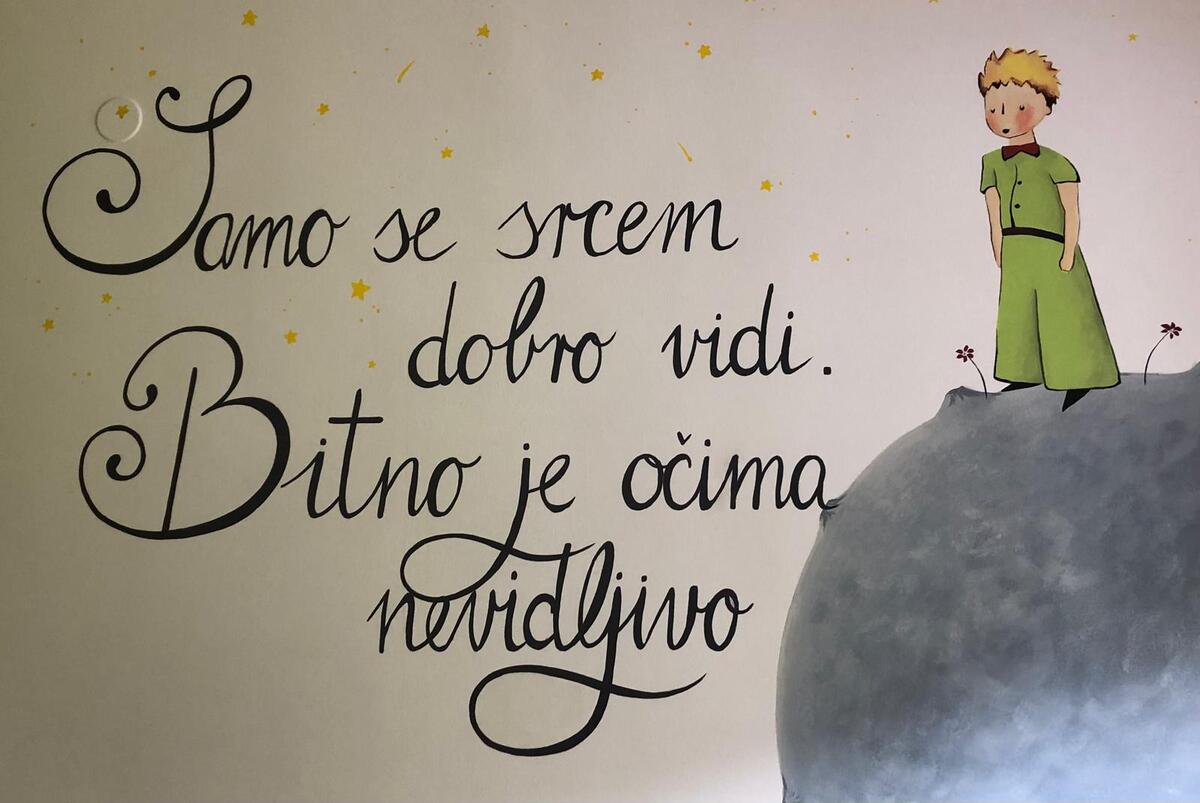 Samo se srcem
dobro vidi.
Bitno je očima
nevidljivo